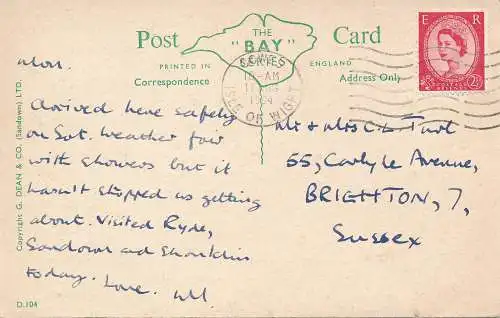 Post
THE
"BAY"
SERIES
Card
PRINTED IN
ENGLAND
Correspondence
Address Only
COWES
-AM
ISLE OF WIGHT
E R
POSTAGE
REVENUE
2½
Mon.
Arrived here safely
on Sat. Weather fair
with showers but it
hasn't stopped us getting
about. Visited Ryde,
Sandown and Shanklin
today. Love.
Mr & Mrs C L
55, Carlyle Avenue,
BRIGHTON, 7,
Sussex
Copyright G. DEAN & CO. (Sandown) LTD.
D.104